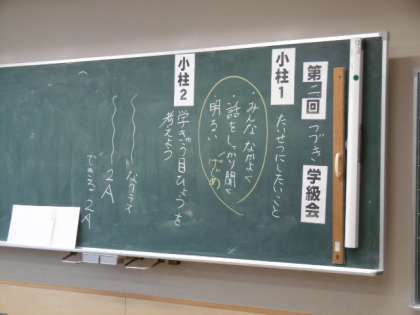 第二回 つづき 学級会
小柱1 たいせつにしたいこと
・みんななかよく
・話をしっかり聞く
・明るい けじめ
小柱2 学きゅう目ひょうを
考えよう
なクラス
2A
できる 2A